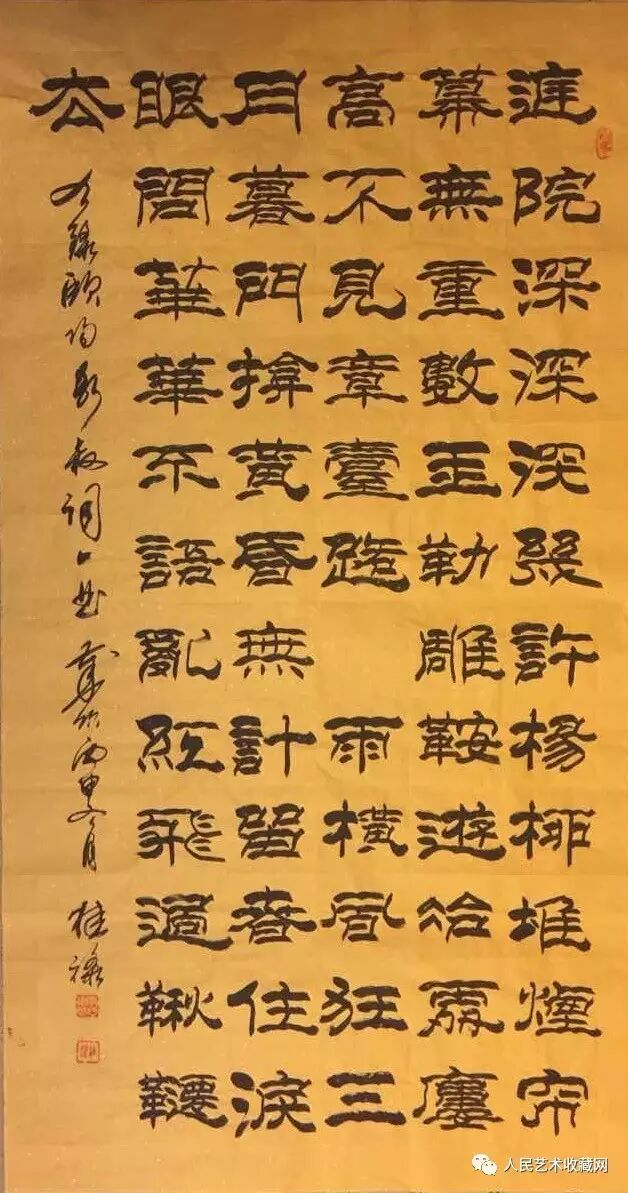 庭院深深深幾許楊柳堆煙帘
幕無重數玉勒雕鞍遊冶處廔
高不見章臺路 雨橫風狂三
月暮門揜黃昏無計留春住淚
眼問華華不語亂紅飛過鞦韆
去
右錄歐 詞 丙申 月
人民艺术收藏网